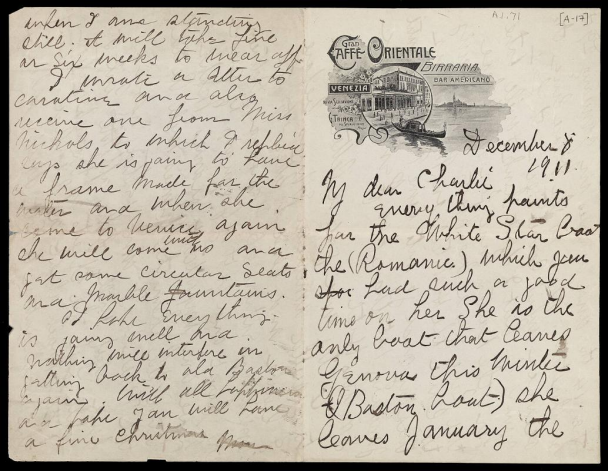 when I am standing
still. it will take five
or six weeks to wear off
I wrote a letter to
carating and also
receive one from Miss
Nichols to which I replied
says she is going to have
a frame made for the
and when she
come to Venice again
she will come with us and
get some circular seats
and Marble fountains.
I hope Everything
is going well and
nothing will interfere in
getting back to old Boston
again. With all
and hope you will have
a fine Christmas
A1.71
[A-17]
GRAN
CAFFÈ ORIENTALE
BIRRARIA
BAR AMERICANO
VENEZIA
December 8
1911.
My dear Charlie
every thing points
for the White Star boat
the (Romanic) which you
had such a good
time on her She is the
only boat that leaves
Genova this Winter
(Boston boat) she
leaves January the